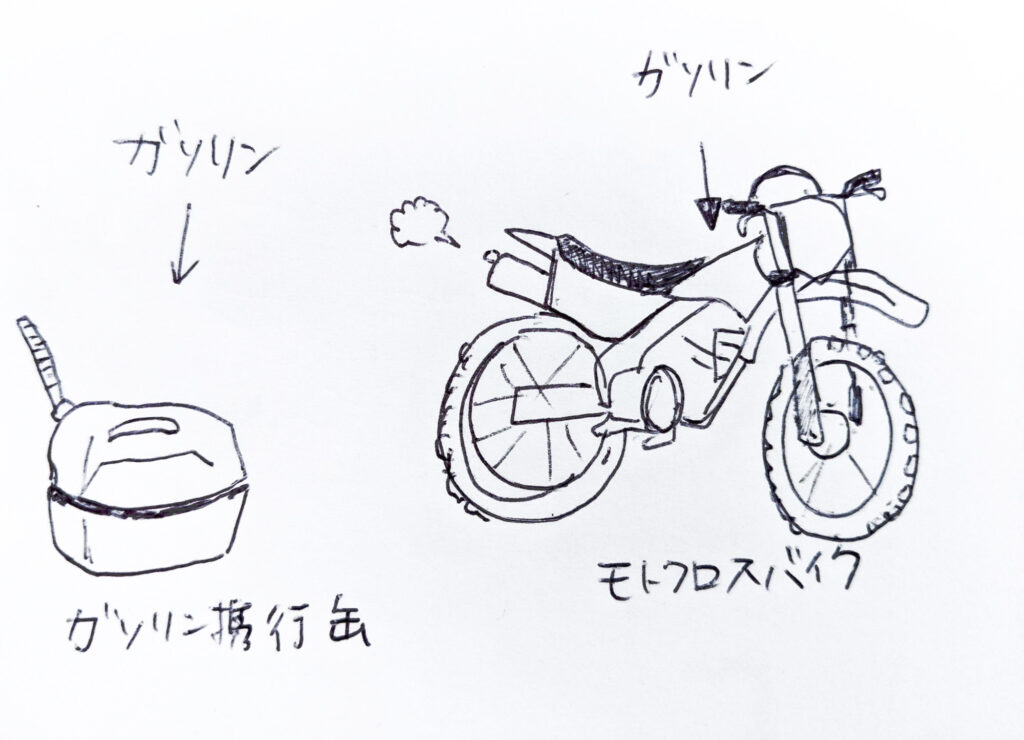 ガソリン
ガソリン
ガソリン携行缶
モトクロスバイク